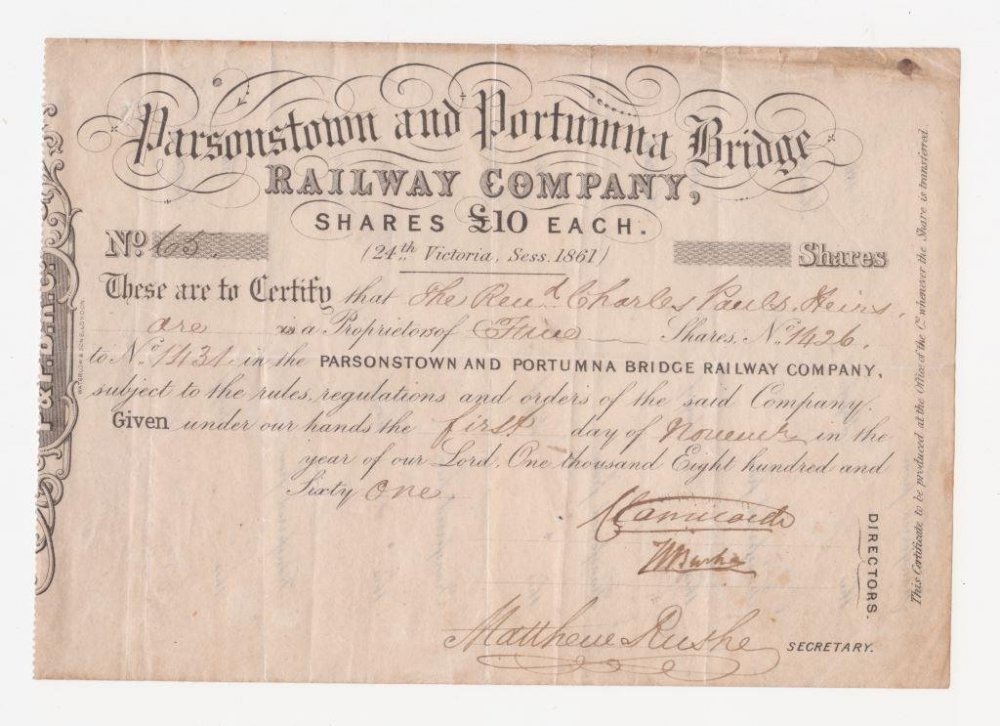 Parsonstown and Portumna Bridge
RAILWAY COMPANY,
SHARES £10 EACH.
No. 65. Shares
(24th Victoria, Sess. 1861)
These are to Certify that The Revd Charles Pauls Heirs,
are is a Proprietors of Shares, No. 1426.
to No. 1431 in the PARSONSTOWN AND PORTUMNA BRIDGE RAILWAY COMPANY,
subject to the rules, regulations and orders of the said Company.
Given under our hands the first day of November in the
year of our Lord, One thousand Eight hundred and
Sixty One.
DIRECTORS.
Matthew SECRETARY.
This Certificate to be produced at the Office of the Co. whenever the Share is transferred.
WATERLOW & SONS, LONDON.